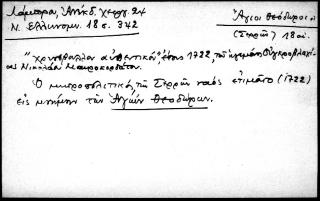 Λάμπρου, Ἀνέκδ. χειρογρ. 24
Ν. Ἑλληνομν. 18 σ. 342
Ἅγιοι Θεόδωροι
(Σερρῶν) 18 αἰ.
"χρυσόβουλλον αὐθεντικόν" ἔτους 1722 τοῦ ἡγεμόνος Οὐγκροβλαχί-
ας Νικολάου Μαυροκορδάτου.
Ὁ μητροπολιτικὸς τῶν Σερρῶν ναὸς ἐτιμᾶτο (1722)
εἰς μνήμην τῶν Ἁγίων Θεοδώρων.